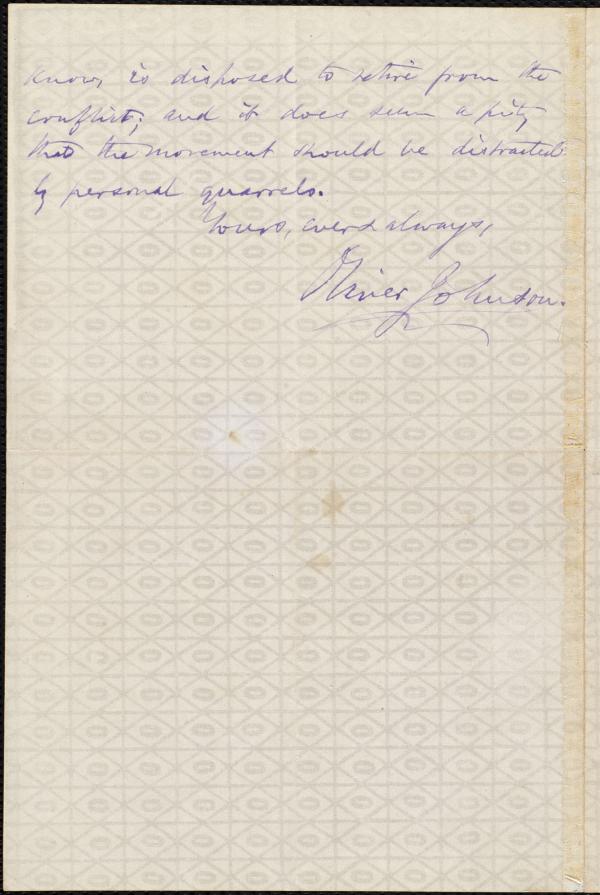 know, is disposed to retire from the
conflict; and it does seem a pity
that the movement should be distracted
by personal quarrels.
Yours, ever & always,
Oliver Johnson.